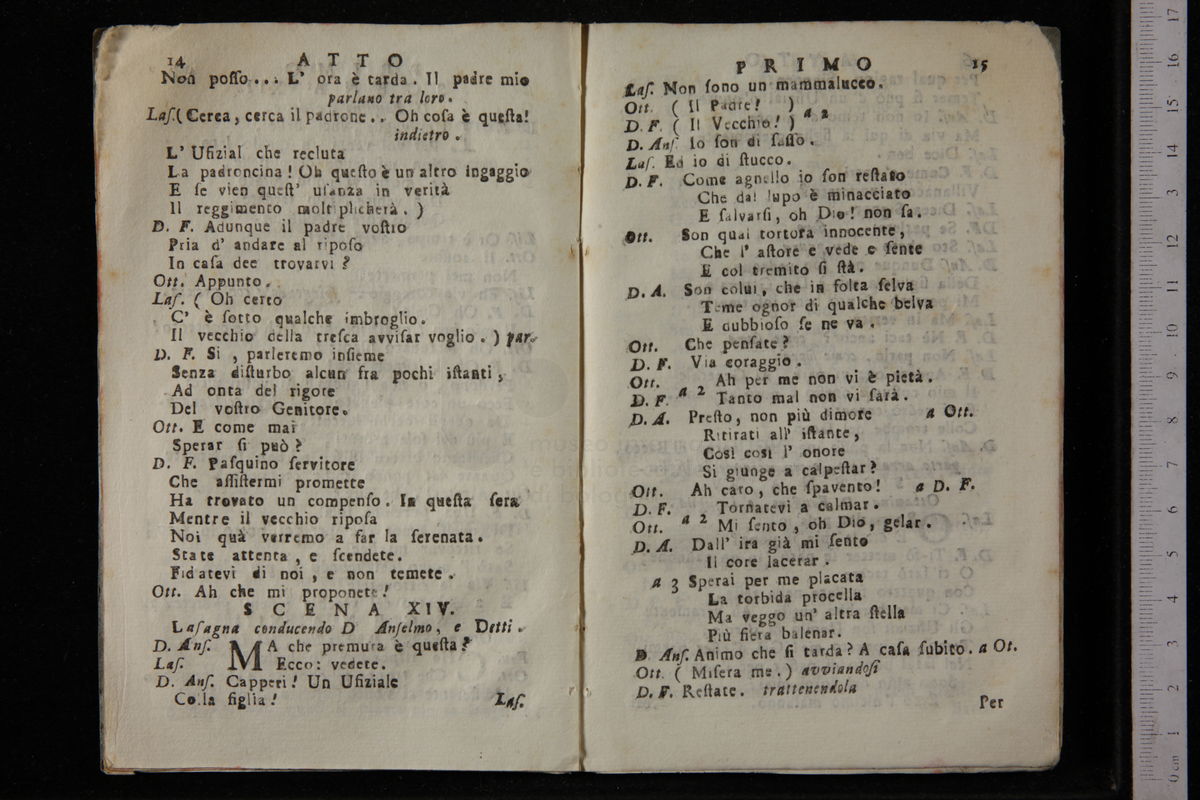 14 A T T O
Non poſſo... L' ora è tarda. Il padre mio
parlano tra loro.
Laſ. (Cerca, cerca il padrone.. Oh coſa è queſta!
indietro.
L' Ufizial che recluta
La padroncina! Oh queſto è un altro ingaggio
E ſe vien queſt' uſanza in verità
Il reggimento moltiplicherà. )
D. F. Adunque il padre voſtro
Pria d' andare al ripoſo
In caſa dee trovarvi?
Ott. Appunto.
Laſ. ( Oh certo
C' è ſotto qualche imbroglio.
Il vecchio della treſca avviſar voglio. ) par.
D. F. Si, parleremo inſieme
Senza diſturbo alcun fra pochi iſtanti,
Ad onta del rigore
Del voſtro Genitore.
Ott. E come mai
Sperar ſi può?
D. F. Paſquino ſervitore
Che aſſiſtermi promette
Ha trovato un compenſo. In queſta ſera
Mentre il vecchio ripoſa
Noi quà verremo a far la ſerenata.
State attenta, e ſcendete.
Fidatevi di noi, e non temete.
Ott. Ah che mi proponete!
S C E N A XIV.
Laſagna conducendo D Anſelmo, e Detti.
D. Anſ. MA che premura è queſta?
Laſ. Ecco: vedete.
D. Anſ. Capperi! Un Ufiziale
Colla figlia!
Laſ.
P R I M O 15
Laſ. Non ſono un mammalucco.
Ott. ( Il Padre! )
a 2
D. F. ( Il Vecchio! )
D. Anſ. Io ſon di ſaſſo.
Laſ. Ed io di ſtucco.
D. F. Come agnello io ſon reſtato
Che dal lupo è minacciato
E ſalvarſi, oh Dio! non ſa.
Ott. Son qual tortora innocente,
Che l' aſtore e vede e ſente
E col tremito ſi ſtà.
D. A. Son colui, che in folta ſelva
Teme ognor di qualche belva
E dubbioſo ſe ne va.
Ott. Che penſate?
D. F. Via coraggio.
Ott. Ah per me non vi è pietà.
a 2
D. F. Tanto mal non vi ſarà.
D. A. Preſto, non più dimore a Ott.
Ritirati all' iſtante,
Così così l' onore
Si giunge a calpeſtar?
Ott. Ah caro, che ſpavento! a D. F.
D. F. Tornatevi a calmar.
a 2
Ott. Mi ſento, oh Dio, gelar.
D. A. Dall' ira già mi ſento
Il core lacerar.
a 3 Sperai per me placata
La torbida procella
Ma veggo un' altra ſtella
Più fiera balenar.
D. Anſ. Animo che ſi tarda? A caſa ſubito. a Ot.
Ott. ( Miſera me. ) avviandoſi
D. F. Reſtate. trattenendola
Per